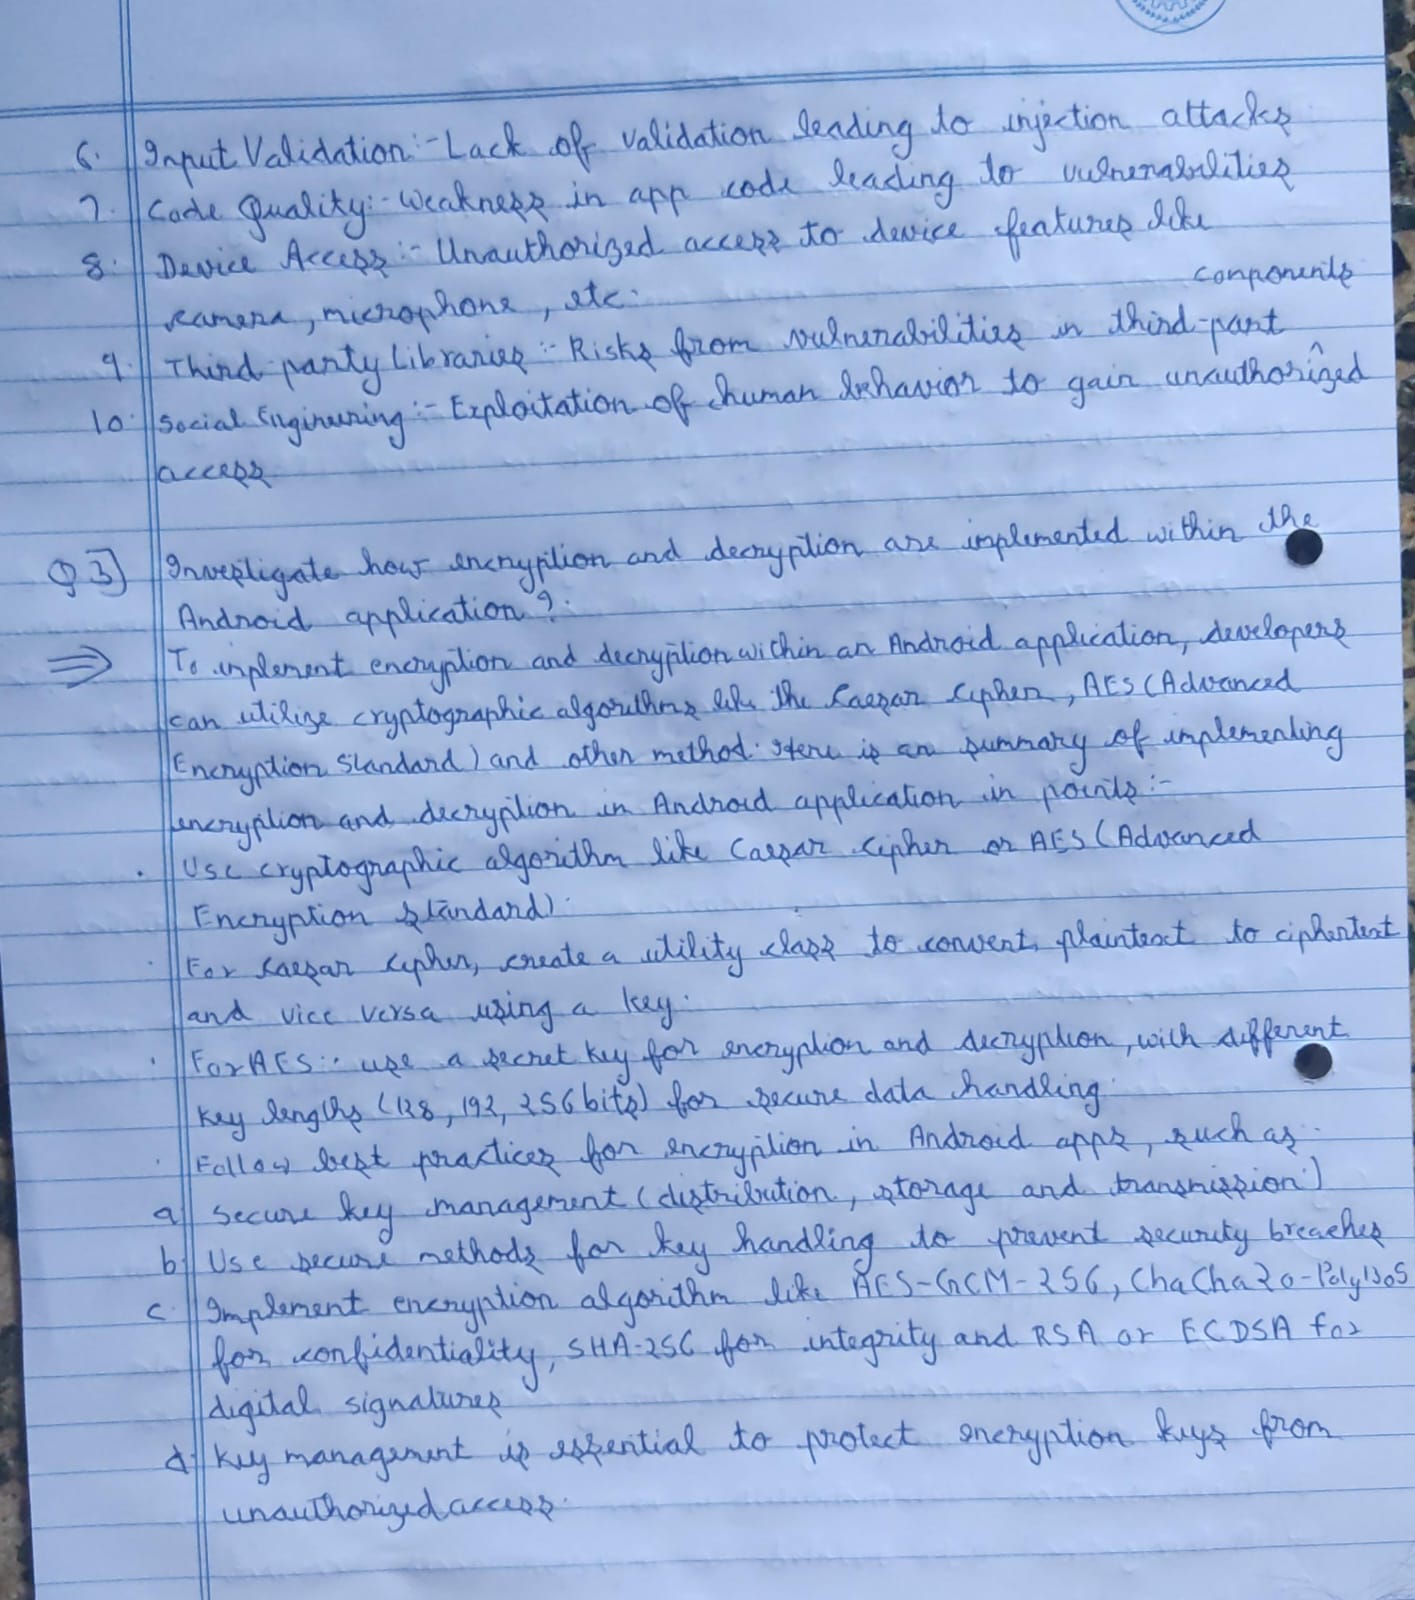 6. Input Validation:- Lack of validation leading to injection attacks
7. Code Quality:- Weakness in app code leading to vulnerabilities
8. Device Access:- Unauthorized access to device features like
camera, microphone, etc.
components
9. Third-party Libraries:- Risks from vulnerabilities in third-part ^
10. Social Engineering:- Exploitation of human behavior to gain unauthorized
access
Q3] Investigate how encryption and decryption are implemented within the
Android application?.
⇒ To implement encryption and decryption within an Android application, developers
can utilize cryptographic algorithms like the Caesar Cipher, AES (Advanced
Encryption Standard) and other method. Here is an summary of implementing
encryption and decryption in Android application in points:-
. Use cryptographic algorithm like Caesar Cipher or AES (Advanced
Encryption Standard).
. For Caesar Cipher, create a utility class to convert plaintext to ciphertext
and vice versa using a key.
. For AES:- use a secret key for encryption and decryption, with different
key lengths (128, 192, 256 bits) for secure data handling.
. Follow best practices for encryption in Android apps, such as
a) Secure key management (distribution, storage and transmission)
b) Use secure methods for key handling to prevent security breaches
c. Implement encryption algorithm like AES-GCM-256, ChaCha20-Poly1305
for confidentiality, SHA-256 for integrity and RSA or ECDSA for
digital signatures
d) Key management is essential to protect encryption keys from
unauthorized access.